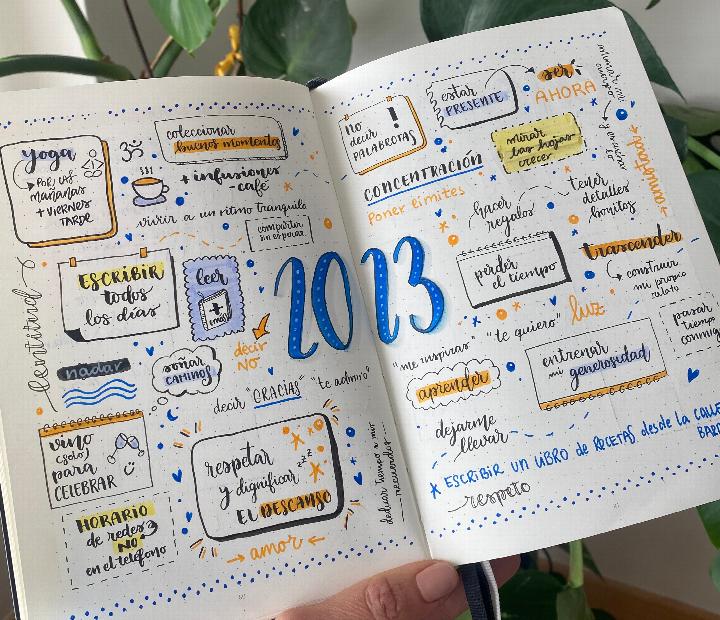 yoga
POR LAS
MAÑANAS
+ VIERNES
TARDE
coleccionar
buenos momentos
+ infusiones
- café
vivir a un ritmo tranquilo
compartir
sin esperar
lentitud
ESCRIBIR
todos
los días
leer
+
decir
NO
nadar
soñar
CAMINOS
decir "GRACIAS" "te admiro"
vino
(solo)
para
CELEBRAR
respetar
y dignificar
zzz
EL DESCANSO
HORARIO
de redes
NO
en el teléfono
→ amor ←
dedicar tiempo a mis
recuerdos
2023
no
decir
PALABROTAS
!
estar
PRESENTE
ser
AHORA
mirar
las hojas
crecer
→ amontad ←
CONCENTRACIÓN
Poner límites
hacer
regalos
tener
detalles
bonitos
perder
el tiempo
trascender
construir
mi propio
relato
"me inspiras"
"te quiero"
luz
pasar
tiempo
conmig
aprender
entrenar
mi generosidad
dejarme
llevar
* ESCRIBIR UN LIBRO de RECETAS desde la CALLE
BARD
respeto